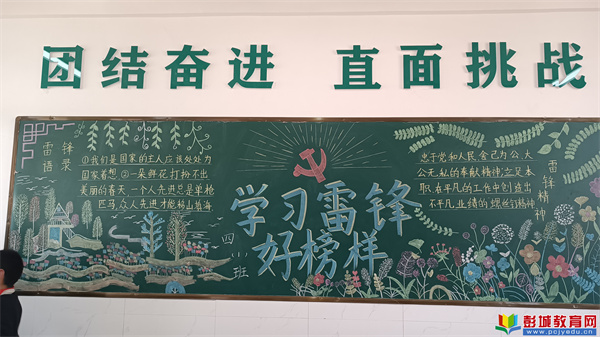 团结奋进 直面挑战
雷锋
语录
①我们是国家的主人应该处处为
国家着想 ②一朵鲜花打扮不出
美丽的春天一个人先进总是单枪
匹马,众人先进才能移山填海
学习雷锋
好榜样
四班
忠于党和人民舍己为公、大
公无私的奉献精神;立足本
职在平凡的工作中创造出
不平凡业绩的螺丝钉精神
雷锋精神
彭城教育网
www.pcjyedu.cn